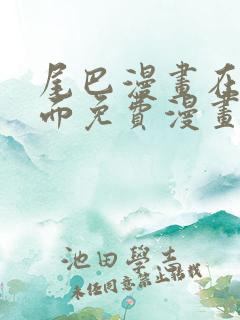 尾巴漫畫在
而免費漫畫
池田學志
未經同意禁止轉載